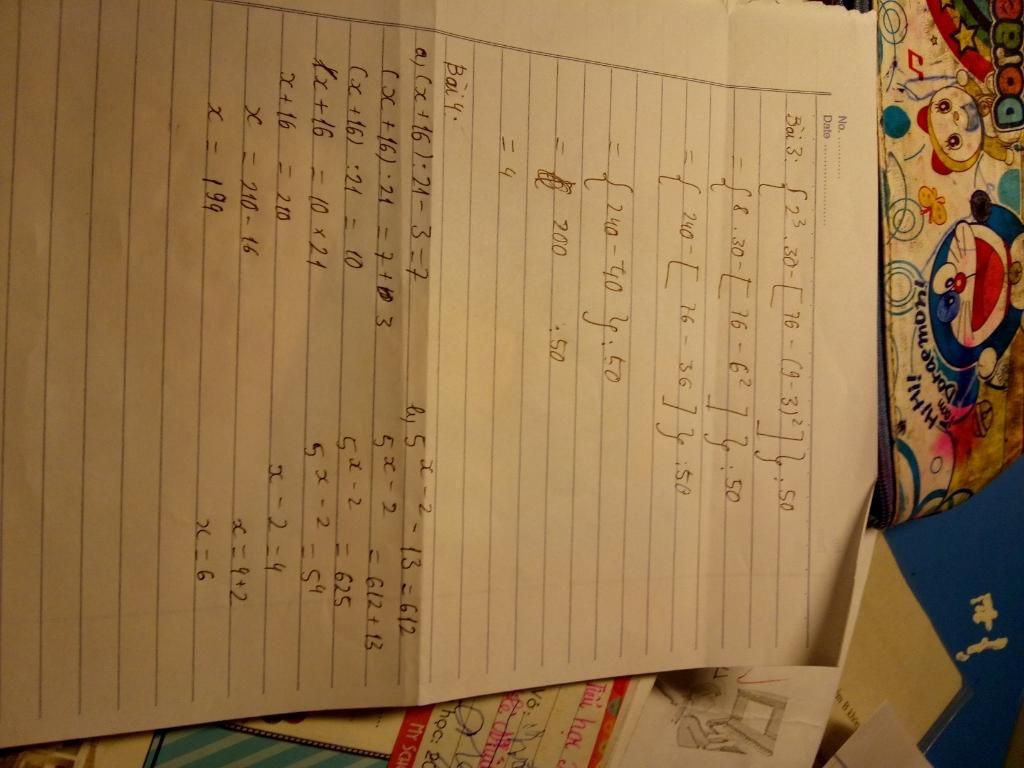 No.
Date
Bài 3: { 2³ . 30 - [ 76 - (9 - 3)² ] } : 50
= { 8 . 30 - [ 76 - 6² ] } : 50
= { 240 - [ 76 - 36 ] } : 50
= { 240 - 40 } : 50
= 200 : 50
= 4
Bài 4:
a, (x + 16) : 21 - 3 = 7
(x + 16) : 21 = 7 + 3
(x + 16) : 21 = 10
x + 16 = 10 x 21
x + 16 = 210
x = 210 - 16
x = 194
b, 5 x - 2 - 13 = 612
5 x - 2 = 612 + 13
5 x - 2 = 625
5 x - 2 = 5⁴
x - 2 = 4
x = 4 + 2
x = 6
Hi Hi!
Doraemon